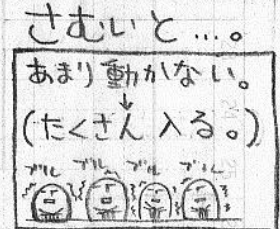 さむいと…。
あまり動かない。
↓
(たくさん入る。)
ブル ブル ブル ブル